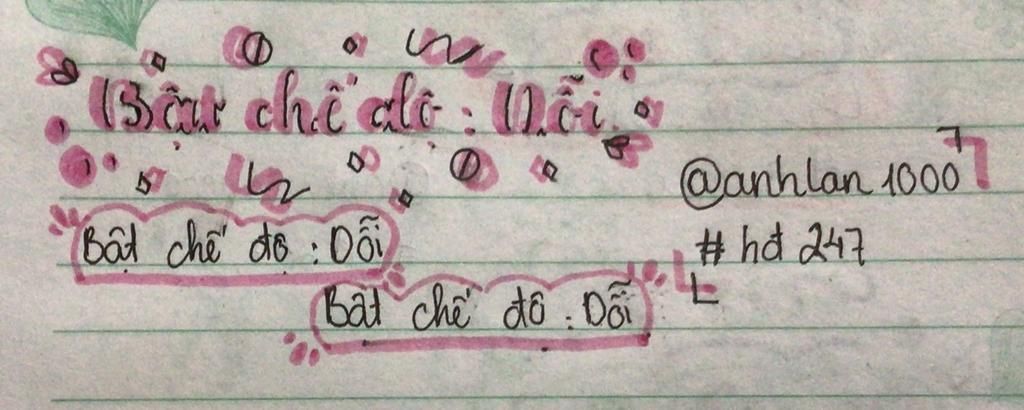 Bật chế độ : Dỗi
@anhlan 1000
Bật chế độ : Dỗi
# hd 247
Bật chế độ : Dỗi